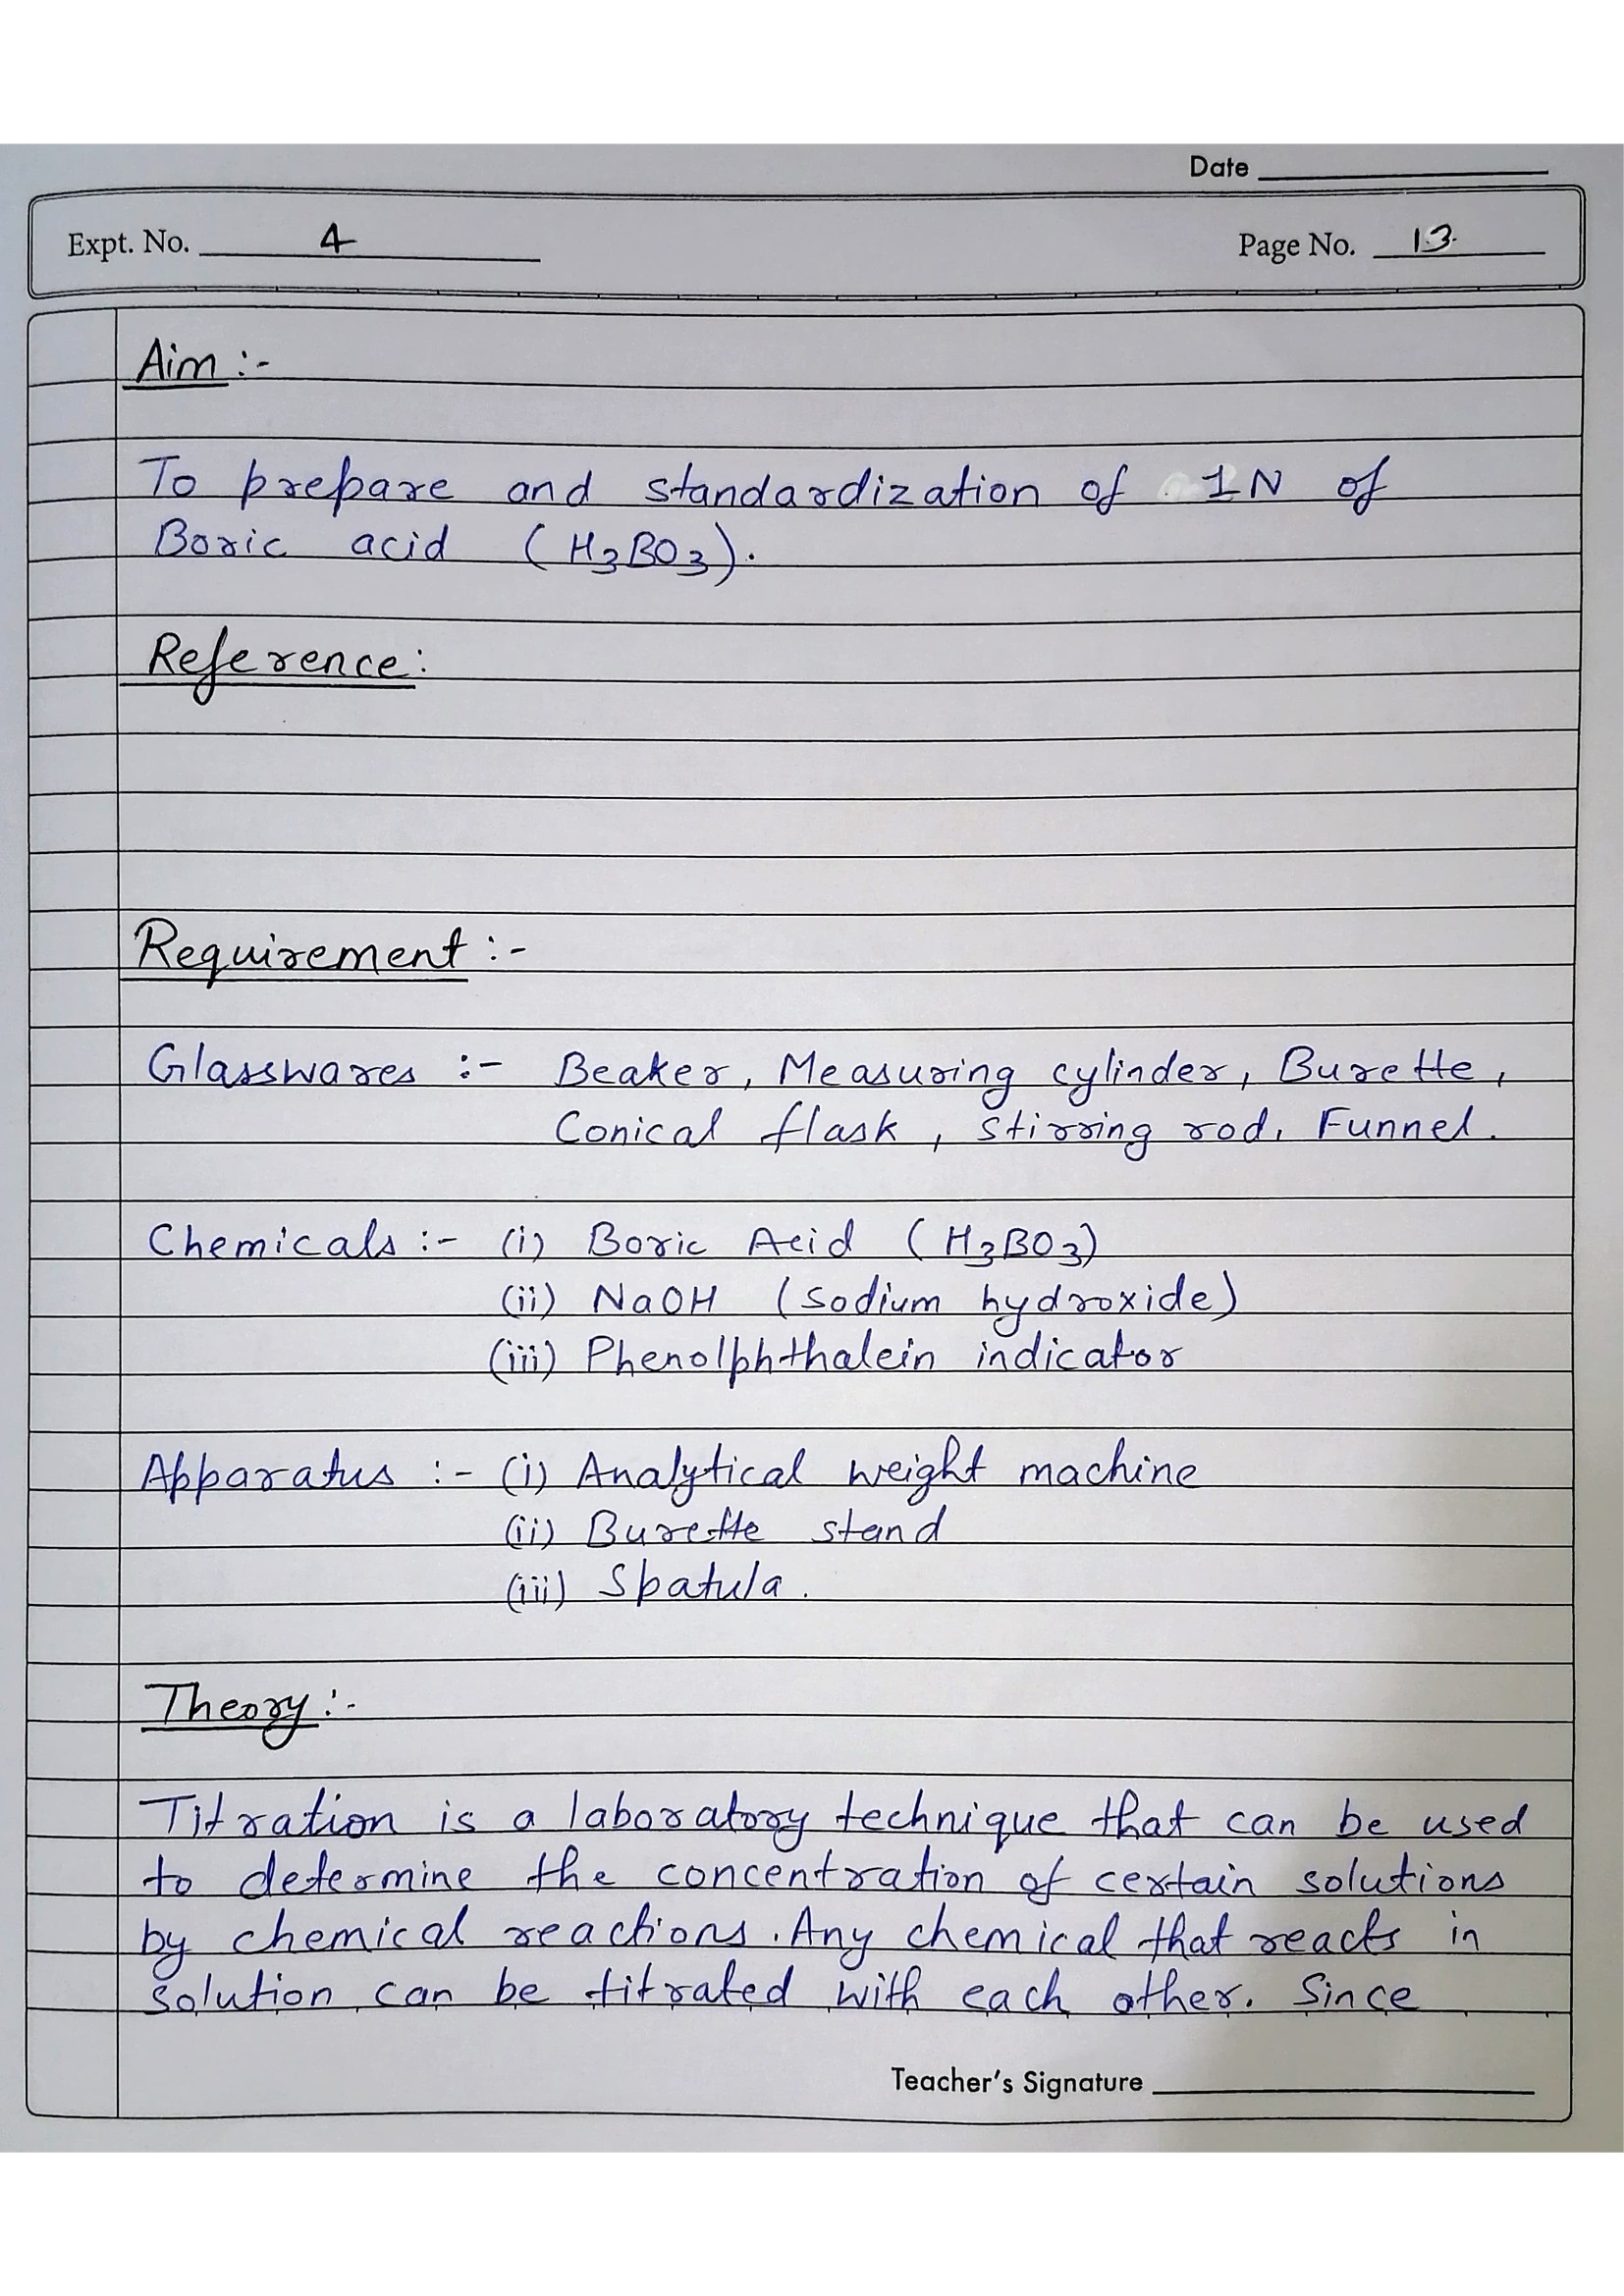 Date
Expt. No. 4
Page No. 13.
Aim :-
To prepare and standardization of 1N of
Boric acid (H3BO3).
Reference:
Requirement :-
Glasswares :- Beaker, Measuring cylinder, Burette,
Conical flask, stirring rod, Funnel.
Chemicals :- (i) Boric Acid (H3BO3)
(ii) NaOH (sodium hydroxide)
(iii) Phenolphthalein indicator
Apparatus :- (i) Analytical weight machine
(ii) Burette stand
(iii) Spatula.
Theory :-
Titration is a laboratory technique that can be used
to determine the concentration of certain solutions
by chemical reactions. Any chemical that reacts in
solution can be titrated with each other. Since
Teacher's Signature